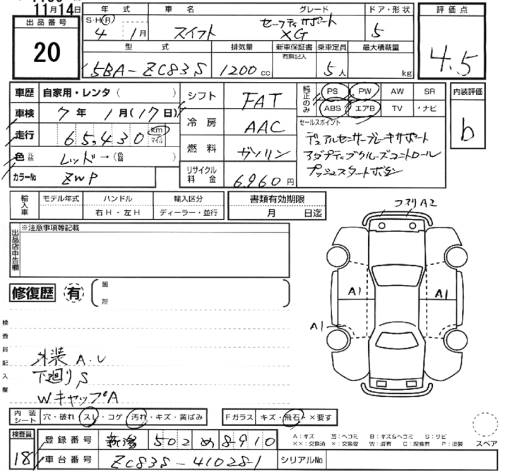 11月14日
出品番号
20
年式 車名 グレード ドア・形状
S・H(R) 4 1月 スイフト セーフティサポート XG 5
型式 排気量 新車保証書 有無記入 乗車定員 最大積載量
5BA-ZC83S 1200cc 5人 kg
評価点
4.5
内装評価
b
車歴 自家用・レンタ( )
車検 7年 1月(17日)
走行 65,430 km マイル
色 レッド→(色替)
カラーNo ZWP
シフト FAT
冷房 AAC
燃料 ガソリン
リサイクル料金 6,960円
純正のみ PS PW AW SR
ABS エアB TV ・ナビ
セールスポイント
デュアルセンサーブレーキサポート
アダプティブクルーズコントロール
プッシュスタートボタン
輸入車 モデル年式 ハンドル 輸入区分
年 右H・左H ディーラー・並行
書類有効期限
月 日迄
出品店申告欄
※注意事項等記載
修復歴 有
検査員記入欄
外装A.U
下廻りS
WキャップA
フロリA2
A1 A1
A1
内装シート 穴・破れ スレ・コゲ 汚れ・キズ・黄ばみ Fガラス キズ・飛石・×要す
検査員
18
登録番号 新潟 502 め 8910
車台番号 ZC83S-410281 シリアルNo
A:キズ B:キズ&ヘコミ S:サビ
スペア